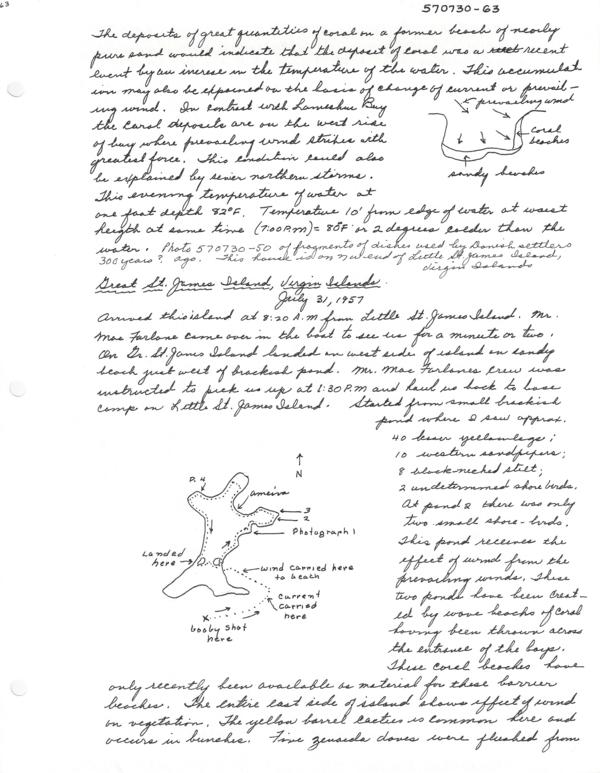 63
570730-63
The deposits of great quantities of coral on a former beach of nearly
pure sand would indicate that the deposit of coral was a recent
event by an increse in the temperature of the water. This accumulat
ion may also be expained on the basis of change of current or prevail-
ing wind. In contrest with Lameshur Bay
the coral deposits are on the west rise
of bay where prevailing wind strikes with
greatest force. This condition could also
be explained by sever northern storms.
This evening temperature of water at
prevailing wind
coral
beaches
sandy beaches
one foot depth 82°F. Temperature 10' from edge of water at waist
heigth at same time (7:00 P.M) = 80°F or 2 degrees colder than the
water. Photo 570730-50 of fragments of dishes used by Danish settlers
300 years? ago. This house is on NW end of Little St. James Island,
Virgin Islands
Great St. James Island, Virgin Islands.
July 31, 1957
Arrived this island at 8:20 A.M from Little St. James Island. Mr.
Mac Farlane came over in the boat to see us for a minute or two.
On Gr. St. James Island landed on west side of island on sandy
beach just west of brackish pond. Mr. Mac Farlanes crew was
instructed to pick us up at 1:30 P.M and haul us back to base
camp on Little St. James Island. Started from small brackish
pond where I saw approx.
40 lesser yellowlegs;
10 western sandpipers;
8 black-necked stilt;
2 undetermined shore birds.
At pond 2 there was only
two small shore-birds.
This pond receives the
effect of wind from the
prevailing winds. These
two ponds have been creat-
ed by wave beachs of coral
having been thrown across
the entrance of the bays.
These coral beaches have
N
P. 4
ameiva
3
2
Photograph 1
Landed
here
wind carried here
to beach
Current
carried
here
X
booby shot
here
only recently been available as material for these barrier
beaches. The entire east side of island shows effect of wind
on vegetation. The yellow barrel cactus is common here and
occurs in bunches. Five zenaida doves were flushed from